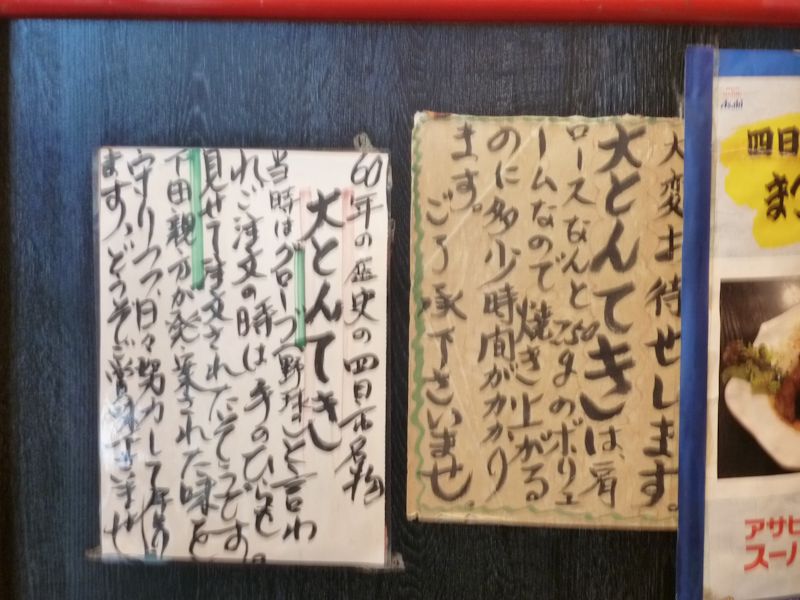 大変お待せします。
大とんてきは、肩
ロースなんと250gのボリュ
ームなので焼き上がる
のに多少時間がかかり
ます。
ご了承下さいませ。
60年の歴史の四日市名物
大とんてき
当時はグローブ(野球の)と言わ
れご注文の時は手のひらを
見せて注文されたそうです。
下田親方が発案された味を
守りつつ、日々努力して居り
ます、どうぞご賞味下さいませ
Asahi
四日
ま
アサヒ
スー